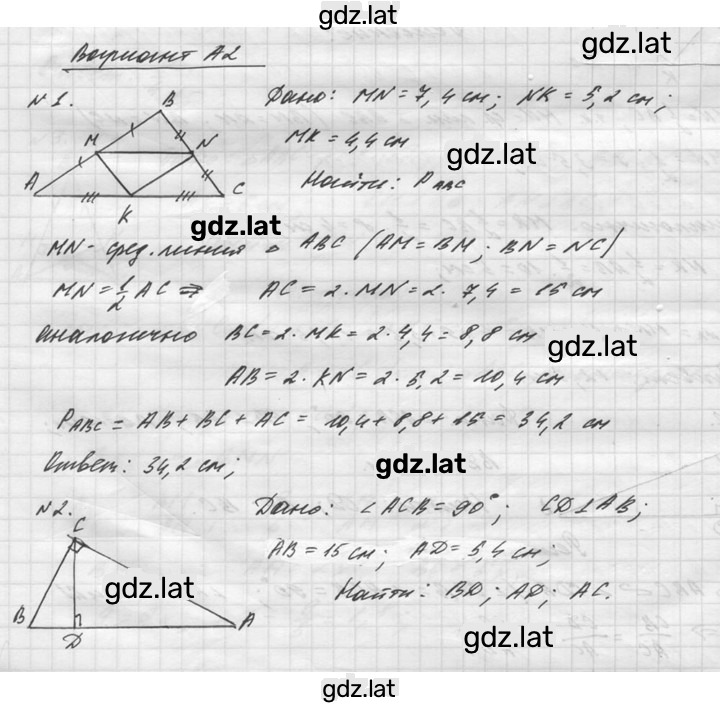 gdz.lat
gdz.lat
Вариант А2
№1.
Дано: MN = 7,4 см; NK = 5,2 см;
MK = 4,4 см
gdz.lat
Найти: P ABC
B
M
N
A
K
C
gdz.lat
MN - сред. линия △ ABC (AM = BM; BN = NC)
MN = 1/2 AC ⇒ AC = 2 · MN = 2 · 7,4 = 15 см
аналогично BC = 2 · MK = 2 · 4,4 = 8,8 см
gdz.lat
AB = 2 · KN = 2 · 5,2 = 10,4 см
P ABC = AB + BC + AC = 10,4 + 8,8 + 15 = 34,2 см
Ответ: 34,2 см;
gdz.lat
№2.
Дано: ∠ACB = 90°; CD ⊥ AB;
AB = 15 см; AD = 5,4 см;
Найти: BD; AD; AC.
C
B
D
A
gdz.lat
gdz.lat
gdz.lat